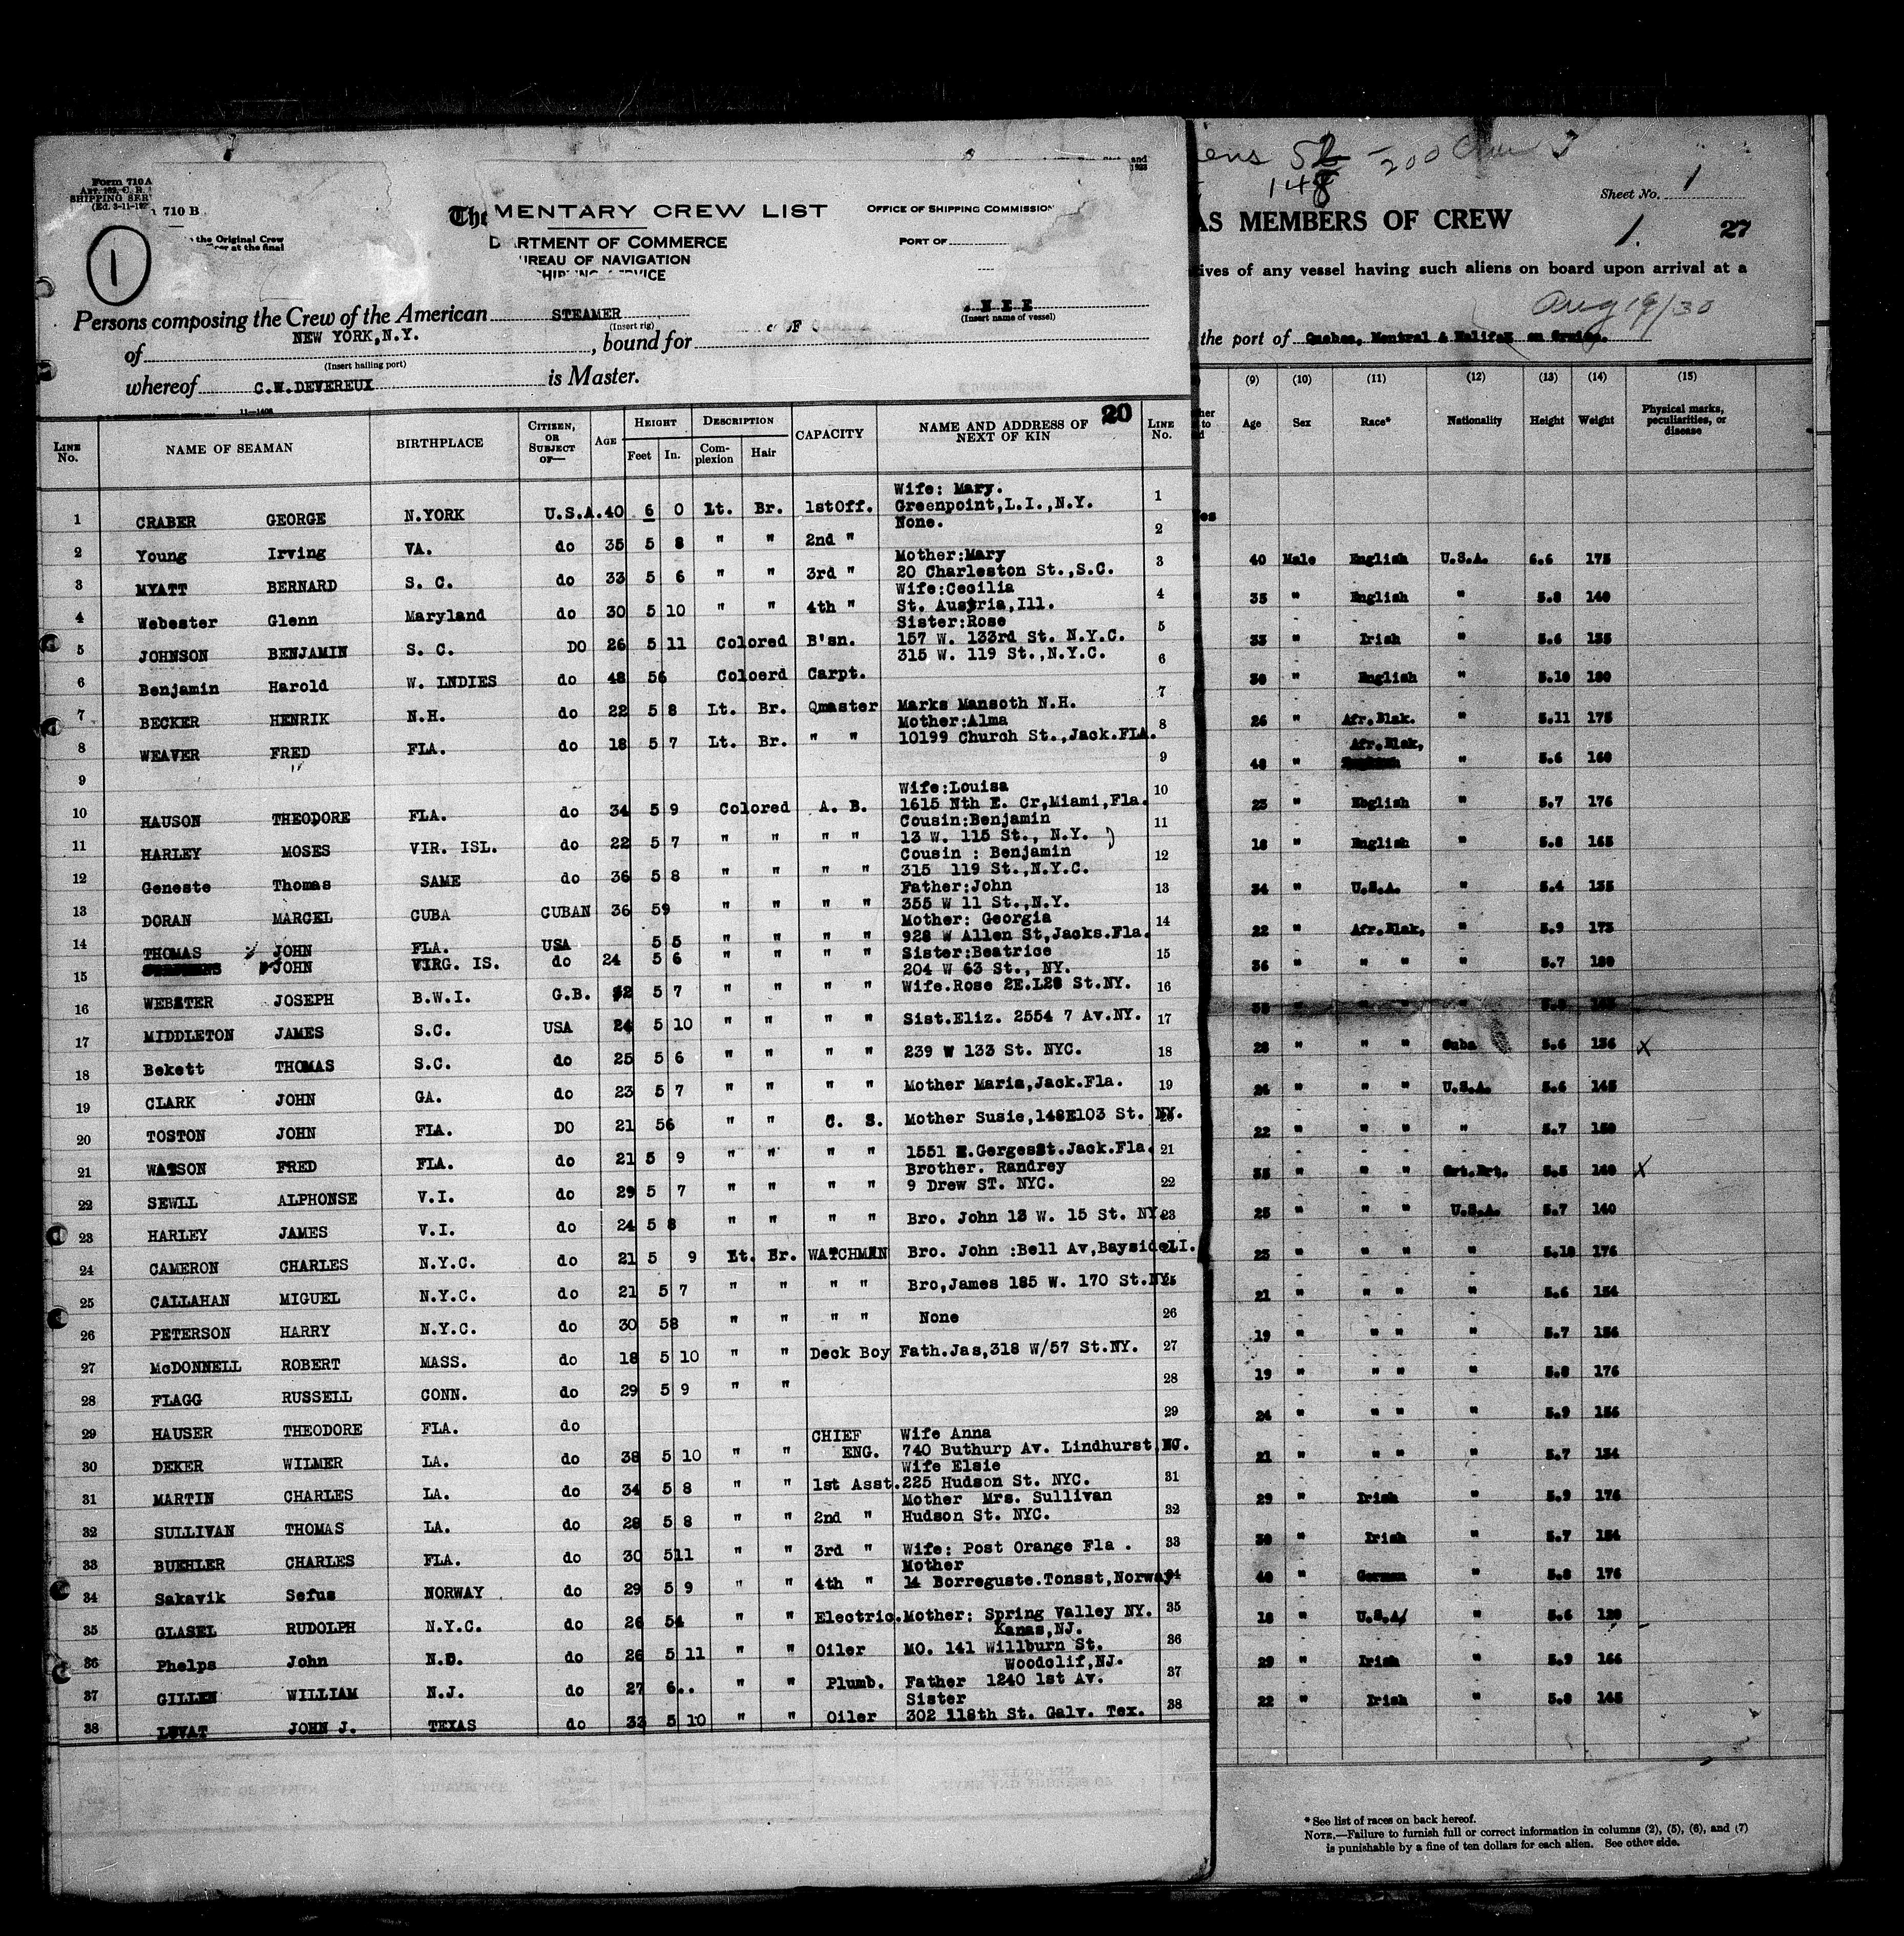 Form 710A
SHIPPING SER
(Ed. 3-11-19
710 B
the Original Crew
cer at the final
1
The MENTARY CREW LIST
RTMENT OF COMMERCE
UREAU OF NAVIGATION
OFFICE OF SHIPPING COMMISSION
PORT OF
and
1923
Persons composing the Crew of the American STEAMER
(Insert rig)
(Insert name of vessel)
of NEW YORK,N.Y. , bound for
(Insert hailing port)
whereof C.W.DEVEREUX is Master.
11—1408
20
LINE No. NAME OF SEAMAN BIRTHPLACE CITIZEN, OR SUBJECT OF— AGE HEIGHT Feet In. DESCRIPTION Complexion Hair CAPACITY NAME AND ADDRESS OF NEXT OF KIN LINE No.
Wife: Mary.
1 CRABER GEORGE N.YORK U.S.A. 40 6 0 Lt. Br. 1stOff. Greenpoint,L.I.,N.Y. 1
None.
2 Young Irving VA. do 35 5 8 " " 2nd " 2
Mother:Mary
3 MYATT BERNARD S. C. do 33 5 6 " " 3rd " 20 Charleston St.,S.C. 3
Wife:Cecilia
4 Webester Glenn Maryland do 30 5 10 " " 4th " St. Austria,Ill. 4
Sister:Rose
5 JOHNSON BENJAMIN S. C. DO 26 5 11 Colored B'sn. 157 W. 133rd St. N.Y.C. 5
315 W. 119 St.,N.Y.C.
6 Benjamin Harold W. INDIES do 48 56 Coloerd Carpt. 6
7 BECKER HENRIK N.H. do 22 5 8 Lt. Br. Qmaster Marks Mansoth N.H. 7
Mother:Alma
8 WEAVER FRED FLA. do 18 5 7 Lt. Br. " " 10199 Church St.,Jack.FLA. 8
9 9
Wife:Louisa
10 HAUSON THEODORE FLA. do 34 5 9 Colored A. B. 1615 Nth E. Cr,Miami,Fla. 10
Cousin:Benjamin
11 HARLEY MOSES VIR. ISL. do 22 5 7 " " " " 13 W. 115 St., N.Y. 11
Cousin : Benjamin
12 Geneste Thomas SAME do 36 5 8 " " " " 315 119 St.,N.Y.C. 12
Father:John
13 DORAN MARCEL CUBA CUBAN 36 59 " " " " 355 W 11 St.,N.Y. 13
Mother: Georgia
14 THOMAS JOHN FLA. USA 5 5 " " " " 928 W Allen St,Jacks.Fla. 14
Sister:Beatrice
15 JOHN VIRG. IS. do 24 5 6 " " " " 204 W 63 St., NY. 15
16 WEBSTER JOSEPH B.W.I. G.B. 32 5 7 " " " " Wife.Rose 2E.L28 St.NY. 16
17 MIDDLETON JAMES S.C. USA 24 5 10 " " " " Sist.Eliz. 2554 7 Av.NY. 17
18 Bekett THOMAS S.C. do 25 5 6 " " " " 239 W 133 St. NYC. 18
19 CLARK JOHN GA. do 23 5 7 " " " " Mother Maria,Jack.Fla. 19
20 TOSTON JOHN FLA. DO 21 56 " " C. S. Mother Susie,148E103 St. NY.
21 WATSON FRED FLA. do 21 5 9 " " " " 1551 E.GergesSt.Jack.Fla. 21
Brother. Randrey
22 SEWLL ALPHONSE V.I. do 29 5 7 " " " " 9 Drew ST. NYC. 22
23 HARLEY JAMES V.I. do 24 5 8 " " " " Bro. John 13 W. 15 St. NY. 23
24 CAMERON CHARLES N.Y.C. do 21 5 9 Lt. Br. WATCHMEN Bro. John :Bell Av,BaysideLI.
25 CALLAHAN MIGUEL N.Y.C. do 21 5 7 " " " " Bro,James 185 W. 170 St.NY. 25
26 PETERSON HARRY N.Y.C. do 30 58 " " " " None 26
27 McDONNELL ROBERT MASS. do 18 5 10 " " Deck Boy Fath.Jas,318 W/57 St.NY. 27
28 FLAGG RUSSELL CONN. do 29 5 9 " " 28
29 HAUSER THEODORE FLA. do 29
CHIEF Wife Anna
30 DEKER WILMER LA. do 38 5 10 " " ENG. 740 Buthurp Av. Lindhurst NJ.
Wife Elsie
31 MARTIN CHARLES LA. do 34 5 8 " " 1st Asst. 225 Hudson St. NYC. 31
Mother Mrs. Sullivan
32 SULLIVAN THOMAS LA. do 28 5 8 " " 2nd " Hudson St. NYC. 32
33 BUEHLER CHARLES FLA. do 30 511 " " 3rd " Wife: Post Orange Fla . 33
Mother
34 Sakavik Sefus NORWAY do 29 5 9 " " 4th " 14 Borreguste.Tonsst,Norway 34
35 GLASEL RUDOLPH N.Y.C. do 26 54 " " Electric. Mother: Spring Valley NY. 35
Kanas,NJ.
36 Phelps John do 26 5 11 " " Oiler MO. 141 Willburn St. 36
Woodclif,NJ.
37 GILLEN WILLIAM N.J. do 27 6.. " " Plumb. Father 1240 1st Av. 37
Sister
38 LUVAT JOHN J. TEXAS do 33 5 10 " " Oiler 302 118th St. Galv. Tex. 38
ens 52 - 200 Crew
148
Sheet No. 1
AS MEMBERS OF CREW
1. 27
ives of any vessel having such aliens on board upon arrival at a
Aug 19/30
the port of Quebec, Montral & Halifax on Cruise.
(9) (10) (11) (12) (13) (14) (15)
Age Sex Race* Nationality Height Weight Physical marks, peculiarities, or disease
40 Male English U.S.A. 6.6 175
35 " English " 5.8 140
33 " Irish " 5.6 135
30 " English " 5.10 180
26 " Afr.Blak. " 5.11 175
Afr.Blak,
48 " " 5.6 160
23 " English " 5.7 176
18 " English " 5.8 165
34 " U.S.A. " 5.4 135
22 " Afr.Blak, " 5.9 173
36 " " " " 5.7 180
28 " " " Cuba 5.6 136 X
24 " " " U.S.A. 5.6 145
22 " " " " 5.7 150
35 " " " Grt.Brt. 5.5 140 X
25 " " " U.S.A. 5.7 140
23 " " " " 5.10 176
21 " " " " 5.6 154
19 " " " " 5.7 156
19 " " " " 5.8 176
24 " " " " 5.9 156
21 " " " " 5.7 154
29 " Irish " 5.9 176
30 " Irish " 5.7 154
40 " German " 5.8 176
18 " U.S.A/ " 5.6 120
29 " Irish " 5.9 166
22 " Irish " 5.8 165
* See list of races on back hereof.
NOTE.—Failure to furnish full or correct information in columns (2), (5), (6), and (7)
is punishable by a fine of ten dollars for each alien. See other side.